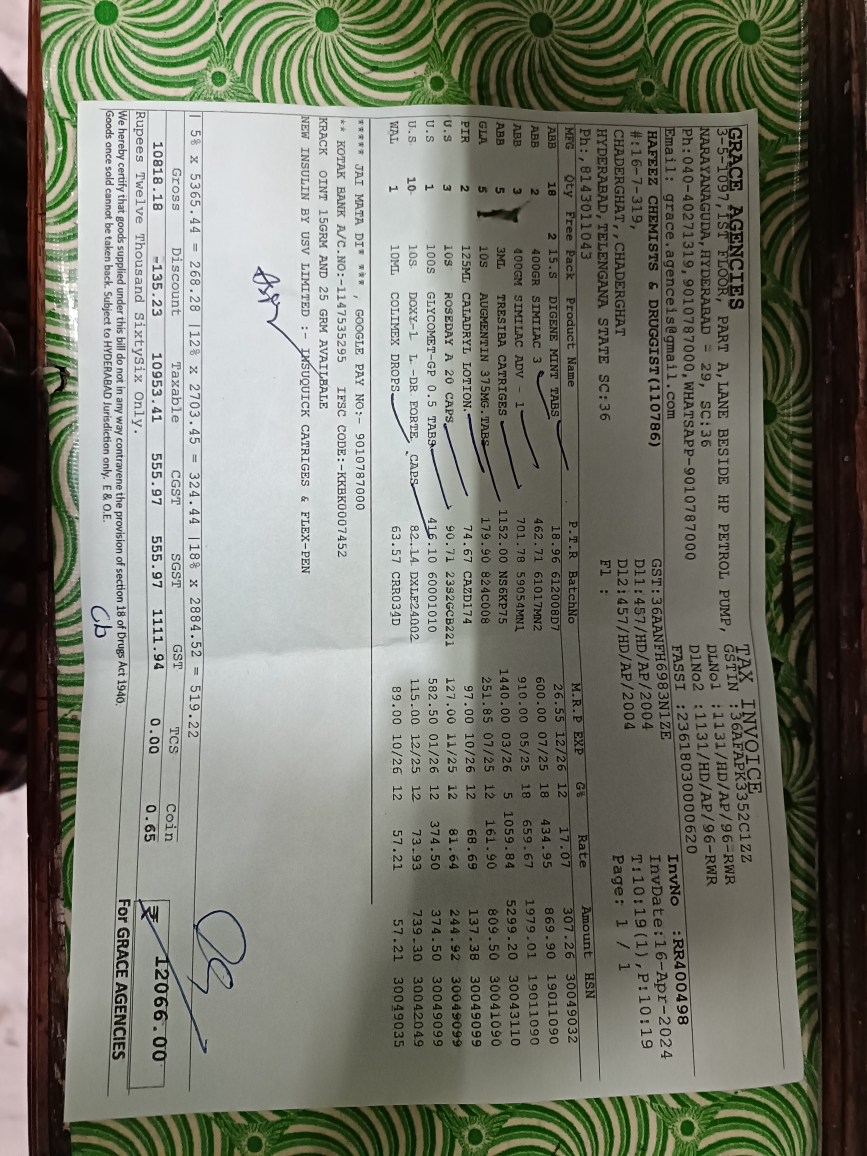 GRACE AGENCIES
3-5-1097, 1ST FLOOR, PART A, LANE BESIDE HP PETROL PUMP,
NARAYANAGUDA, HYDERABAD = 29, SC:36
Ph:040-40271319,9010787000,WHATSAPP-9010787000
Email: grace.agenceis@gmail.com
TAX INVOICE
GSTIN :36AFAPK3352C1ZZ
DLNo1 :1131/HD/AP/96-RWR
DlNo2 :1131/HD/AP/96-RWR
FASSI :23618030000620
HAFEEZ CHEMISTS & DRUGGIST(110786)
#:16-7-319,
CHADERGHAT,,CHADERGHAT
HYDERABAD,TELENGANA STATE SC:36
Ph:,8143011043
GST:36AANFH6983N1ZE
Dl1:457/HD/AP/2004
Dl2:457/HD/AP/2004
Fl :
InvNo :RR400498
InvDate:16-Apr-2024
T:10:19(1),P:10:19
Page: 1 / 1
MFG Qty Free Pack Product Name P.T.R BatchNo M.R.P EXP G% Rate Amount HSN
ABB 18 2 15.S DIGENE MINT TABS 18.96 612008D7 26.55 12/26 12 17.07 307.26 30049032
ABB 2 400GR SIMILAC 3 462.71 61017MN2 600.00 07/25 18 434.95 869.90 19011090
ABB 3 400GM SIMILAC ADV - 1 701.78 59054MN1 910.00 05/25 18 659.67 1979.01 19011090
ABB 5 3ML TRESIBA CATRIGES 1152.00 NS6KP75 1440.00 03/26 5 1059.84 5299.20 30043110
GLA 5 10S AUGMENTIN 375MG.TABS 179.90 824C008 251.85 07/25 12 161.90 809.50 30041090
PIR 2 125ML CALADRYL LOTION. 74.67 CAZD174 97.00 10/26 12 68.69 137.38 30049099
U.S 3 10S ROSEDAY A 20 CAPS 90.71 23S2GCB221 127.00 11/25 12 81.64 244.92 30049099
U.S 1 100S GLYCOMET-GP 0.5 TABS 416.10 60001010 582.50 01/26 12 374.50 374.50 30049099
U.S 10 10S DOXY-1 L -DR FORTE CAPS 82.14 DXLF24002 115.00 12/25 12 73.93 739.30 30042049
WAL 1 10ML COLIMEX DROPS 63.57 CRR034D 89.00 10/26 12 57.21 57.21 30049035
***** JAI MATA DI* *** , GOOGLE PAY NO:- 9010787000
** KOTAK BANK A/C.NO:-1147535295 IFSC CODE:-KKBK0007452
KRACK OINT 15GRM AND 25 GRM AVAILBALE
NEW INSULIN BY USV LIMITED :- INSUQUICK CATRIGES & FLEX-PEN
| 5% x 5365.44 = 268.28 |12% x 2703.45 = 324.44 |18% x 2884.52 = 519.22
Gross Discount Taxable CGST SGST GST TCS Coin
10818.18 -135.23 10953.41 555.97 555.97 1111.94 0.00 0.65
₹ 12066.00
Rupees Twelve Thousand SixtySix Only.
We hereby certify that goods supplied under this bill do not in any way contravene the provision of section 18 of Drugs Act 1940.
Goods once sold cannot be taken back. Subject to HYDERABAD Jurisdiction only. E & O.E.
For GRACE AGENCIES